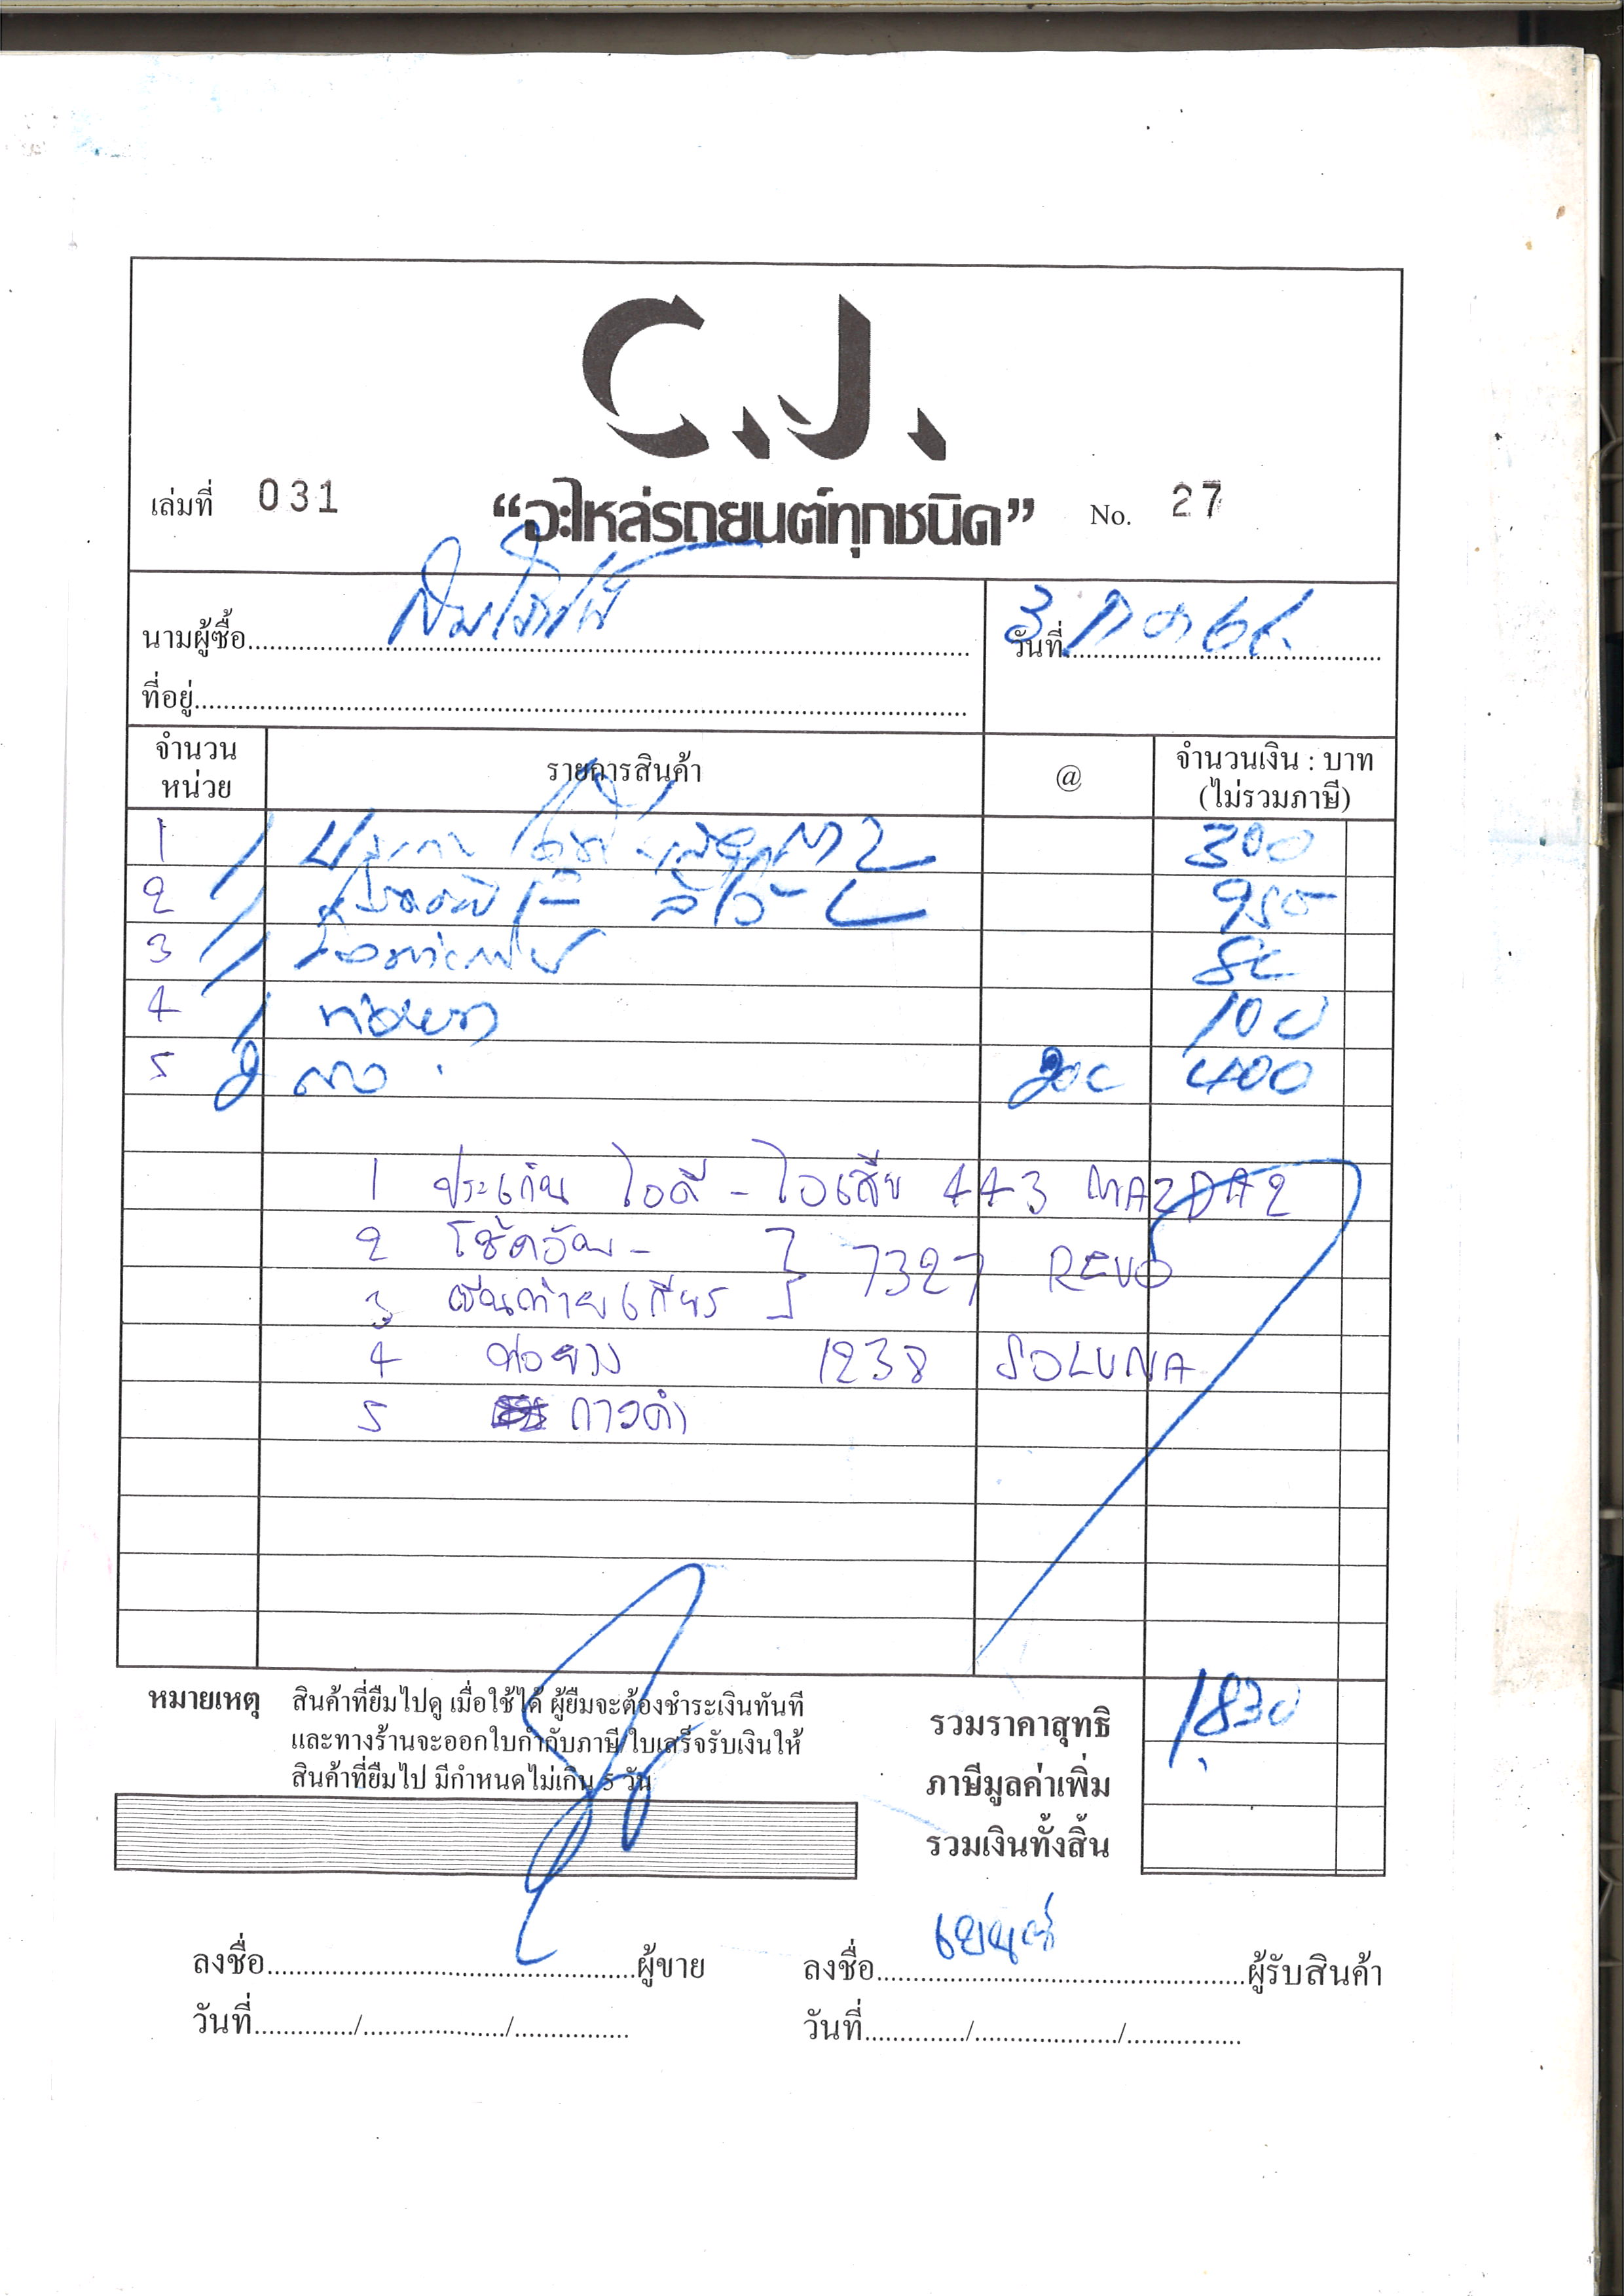 C.J.
เล่มที่ 031 “อะไหล่รถยนต์ทุกชนิด” No. 27
นามผู้ซื้อ
วันที่ 3
ที่อยู่
จำนวน หน่วย รายการสินค้า @ จำนวนเงิน : บาท (ไม่รวมภาษี)
1 300
2 950
3 80
4 1 ท่อยาง 100
5 2 กาว 200 400
1 ประเก็น ไอดี - ไอเสีย 443 MAZDA2
2 โช้คอัพ - } 7327 REVO
3 เกียร }
4 ท่อยาง 1238 SOLUNA
5 กาวดำ
หมายเหตุ สินค้าที่ยืมไปดู เมื่อใช้ได้ ผู้ยืมจะต้องชำระเงินทันที
และทางร้านจะออกใบกำกับภาษี/ใบเสร็จรับเงินให้
สินค้าที่ยืมไป มีกำหนดไม่เกิน 5 วัน
รวมราคาสุทธิ 1830
ภาษีมูลค่าเพิ่ม
รวมเงินทั้งสิ้น
ลงชื่อ ผู้ขาย ลงชื่อ ผู้รับสินค้า
วันที่ / / วันที่ / /